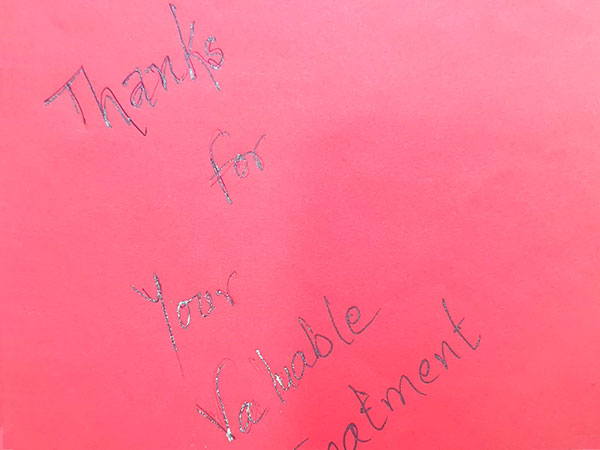 Thanks
for
Your
Valuable
Treatment